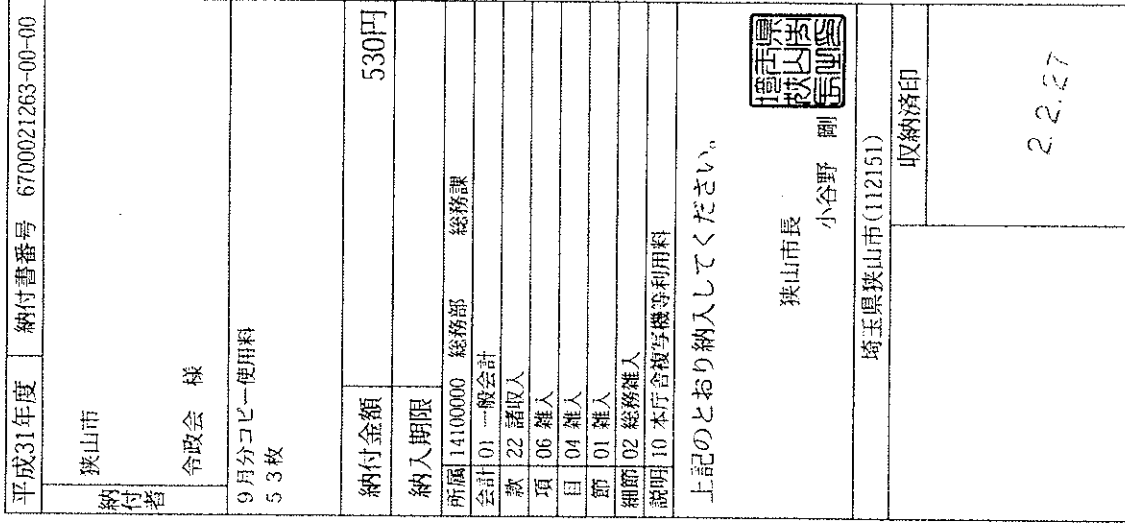 平成31年度 納付書番号 6700021263-00-00
納付者
狭山市
令政会 様
9月分コピー使用料
53枚
納付金額 530円
納入期限
所属 14100000 総務部 総務課
会計 01 一般会計
款 22 諸収入
項 06 雑入
目 04 雑入
節 01 雑入
細節 02 総務雑入
説明 10 本庁舎複写機等利用料
上記のとおり納入してください。
狭山市長
小谷野 剛
埼玉県狭山市(112151)
収納済印
2.2.27